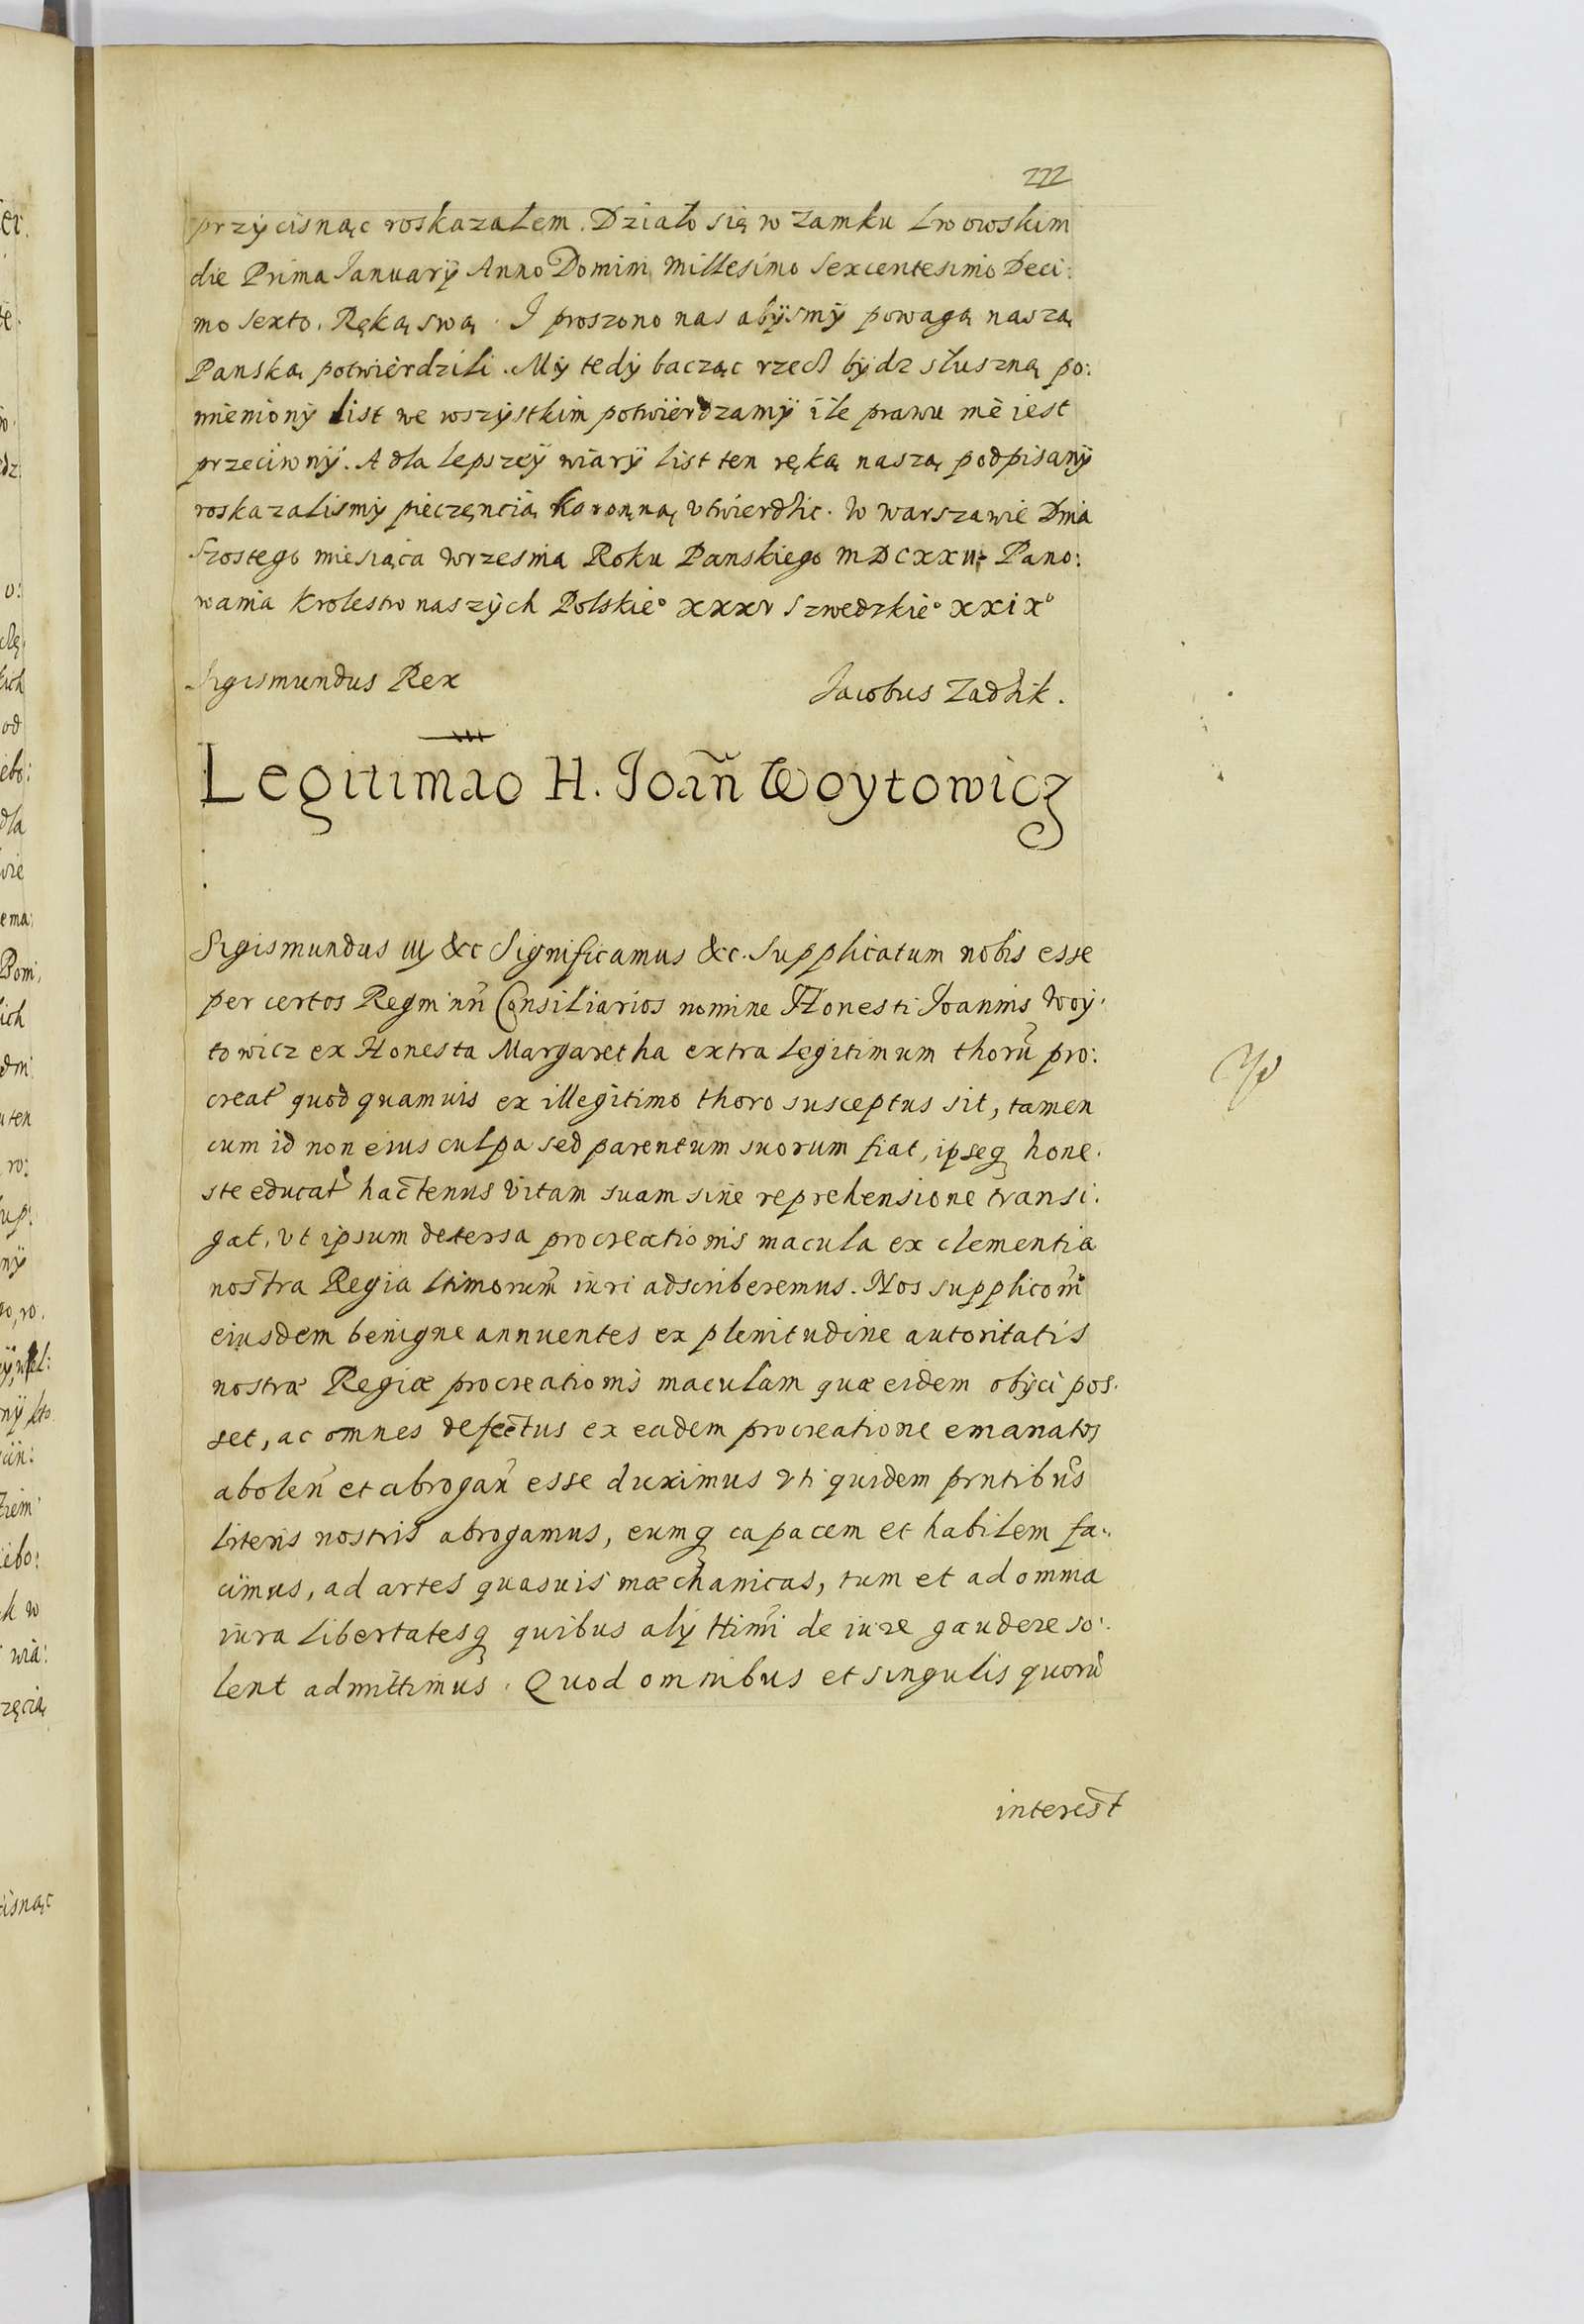 222
przÿcisnąc roskazałem. Działo się w Zamku Lwowskim
die Prima Januarÿ Anno Domini Millesimo Sexcentesimo Deci:
mo Sexto. Ręką swą. I proszono nas abÿsmÿ powagą naszą
Panską potwierdzili. Mÿ tedÿ bacząc rzecz bÿdz słuszną po:
mienionÿ list we wszÿstkim potwierdzamÿ ile prawu nie iest
przeciwnÿ. A dla lepszeÿ wiarÿ list ten ręką naszą podpisanÿ
roskazalismÿ pieczęncią koronną vtwierdzic. W Warszawie Dnia
Szostego miesiąca Wrzesnia Roku Panskiego MDCXXII. Pano:
wania Krolestw naszÿch Polskie° XXXV Szwedzkie° XXIX°
Sigismundus Rex
Jacobus Zadzik.
Legitimao H. Joañ Woytowicz
Sigismundus III &c Significamus &c. Supplicatum nobis esse
per certos Regni nr̃i Consiliarios nomine Honesti Joannis Woÿ:
towicz ex Honesta Margaretha extra legitimum thorũ pro:
creat̃ quod quamuis ex illegitimo thoro susceptus sit, tamen
cum id non eius culpa sed parentum suorum fiat, ipseq hone:
ste educat̃ hactenus vitam suam sine reprehensione transi:
gat, vt ipsum detersa procreationis macula ex clementia
nostra Regia ltimorum̃ iuri adscriberemus. Nos supplicom̃i
eiusdem benigne annuentes ex plenitudine autoritatis
nostræ Regiæ procreationis maculam quæ eidem obÿci pos:
set, ac omnes defectus ex eadem procreatione emanatos
abolen̄ et abrogan̄ esse duximus vti quidem prntibus̃
literis nostris abrogamus, eumq capacem et habilem fa:
cimus, ad artes quasuis mæchanicas, tum et ad omnia
iura libertatesq quibus alÿ ltimi̇̃ de iure gaudere so:
lent admittimus. Quod omnibus et singulis quorũ
interest